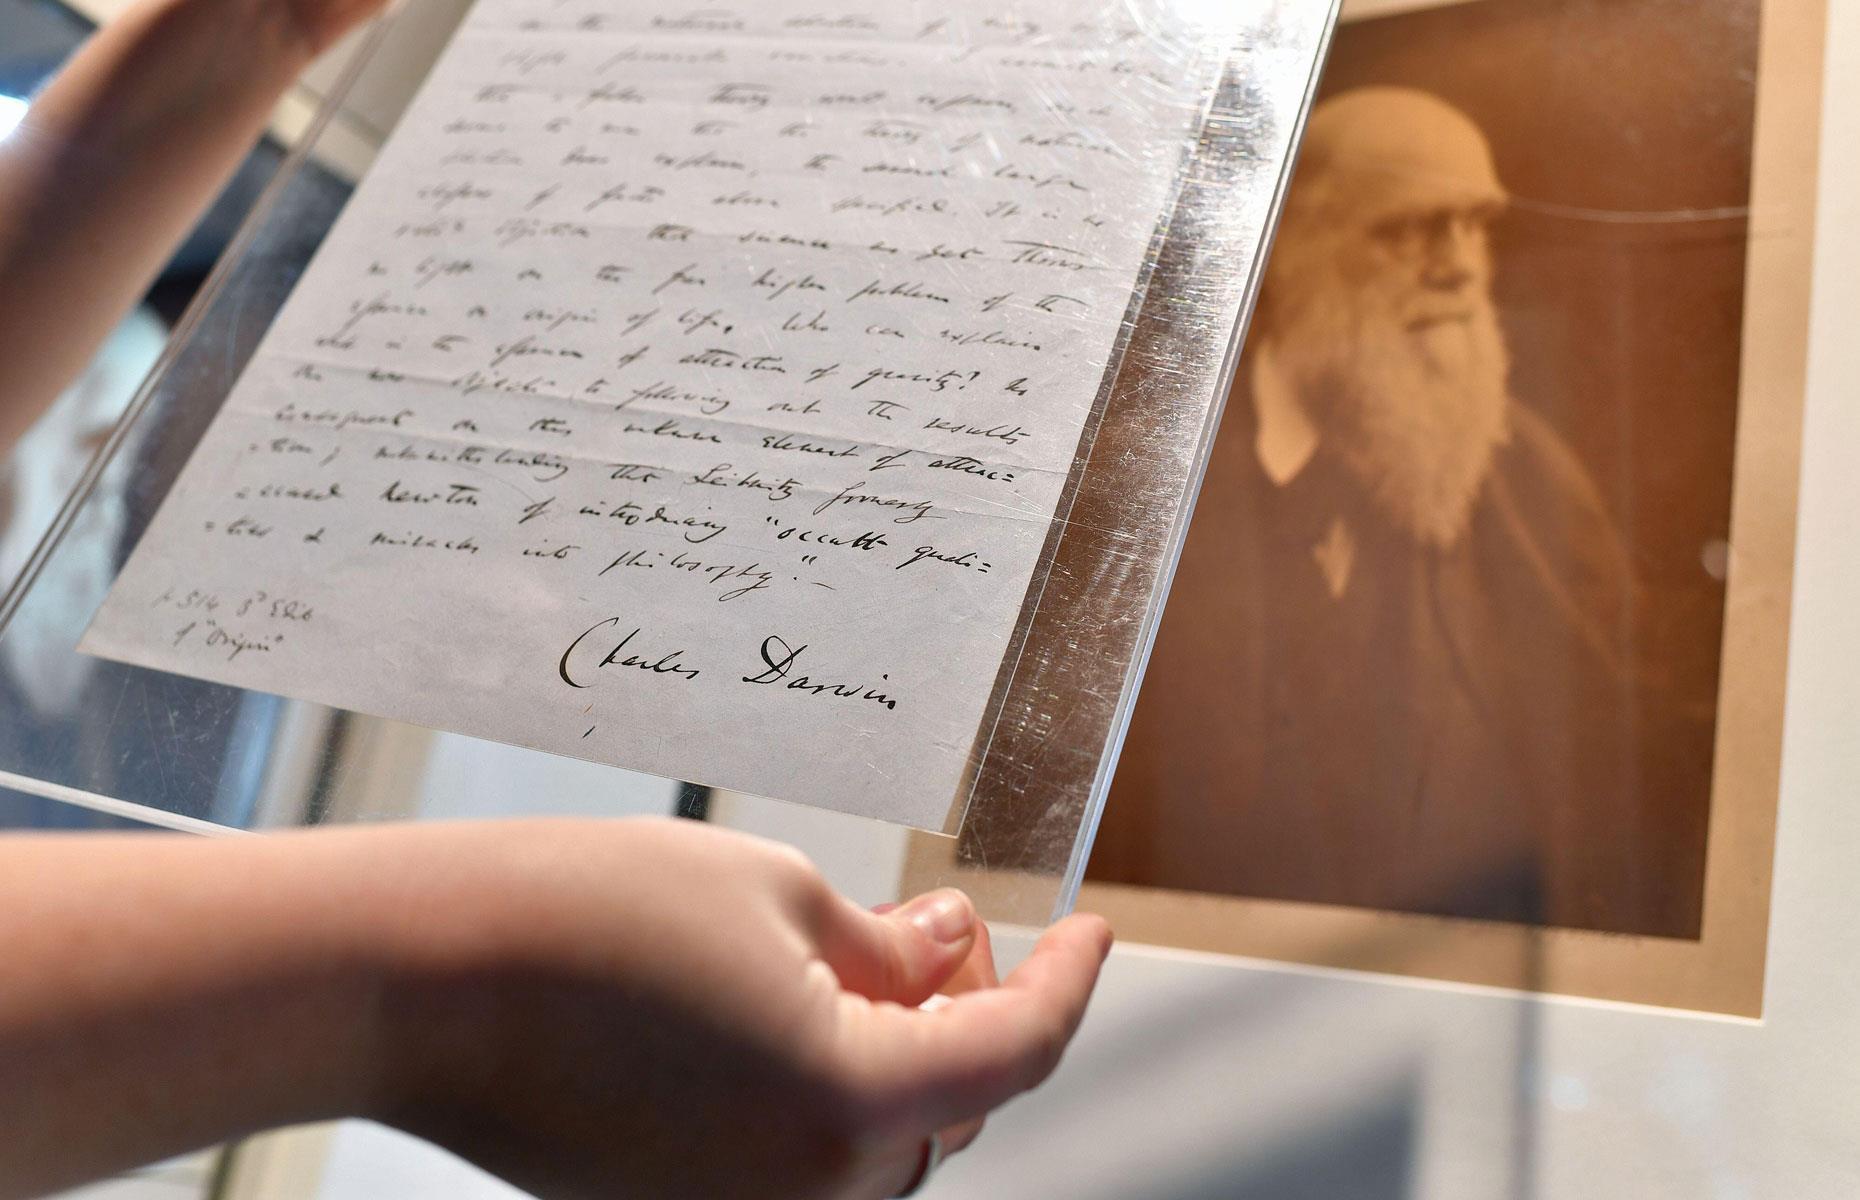 in the                                of many
slight favourable variations. I cannot believe
that a false theory would explain, as it
seems to me that the theory of natural
selection does explain, the several large
classes of facts above specified. It is no
valid objection that science as yet throws
no light on the far higher problem of the
essence or origin of life. Who can explain
what is the essence of attraction of gravity? No
one now objects to following out the results
consequent on this unknown element of attrac=
=tion; notwithstanding that Leibnitz formerly
accused Newton of introducing "occult quali=
=ties & miracles into philosophy."—
p 514 3d Edit
of "Origin"
Charles Darwin